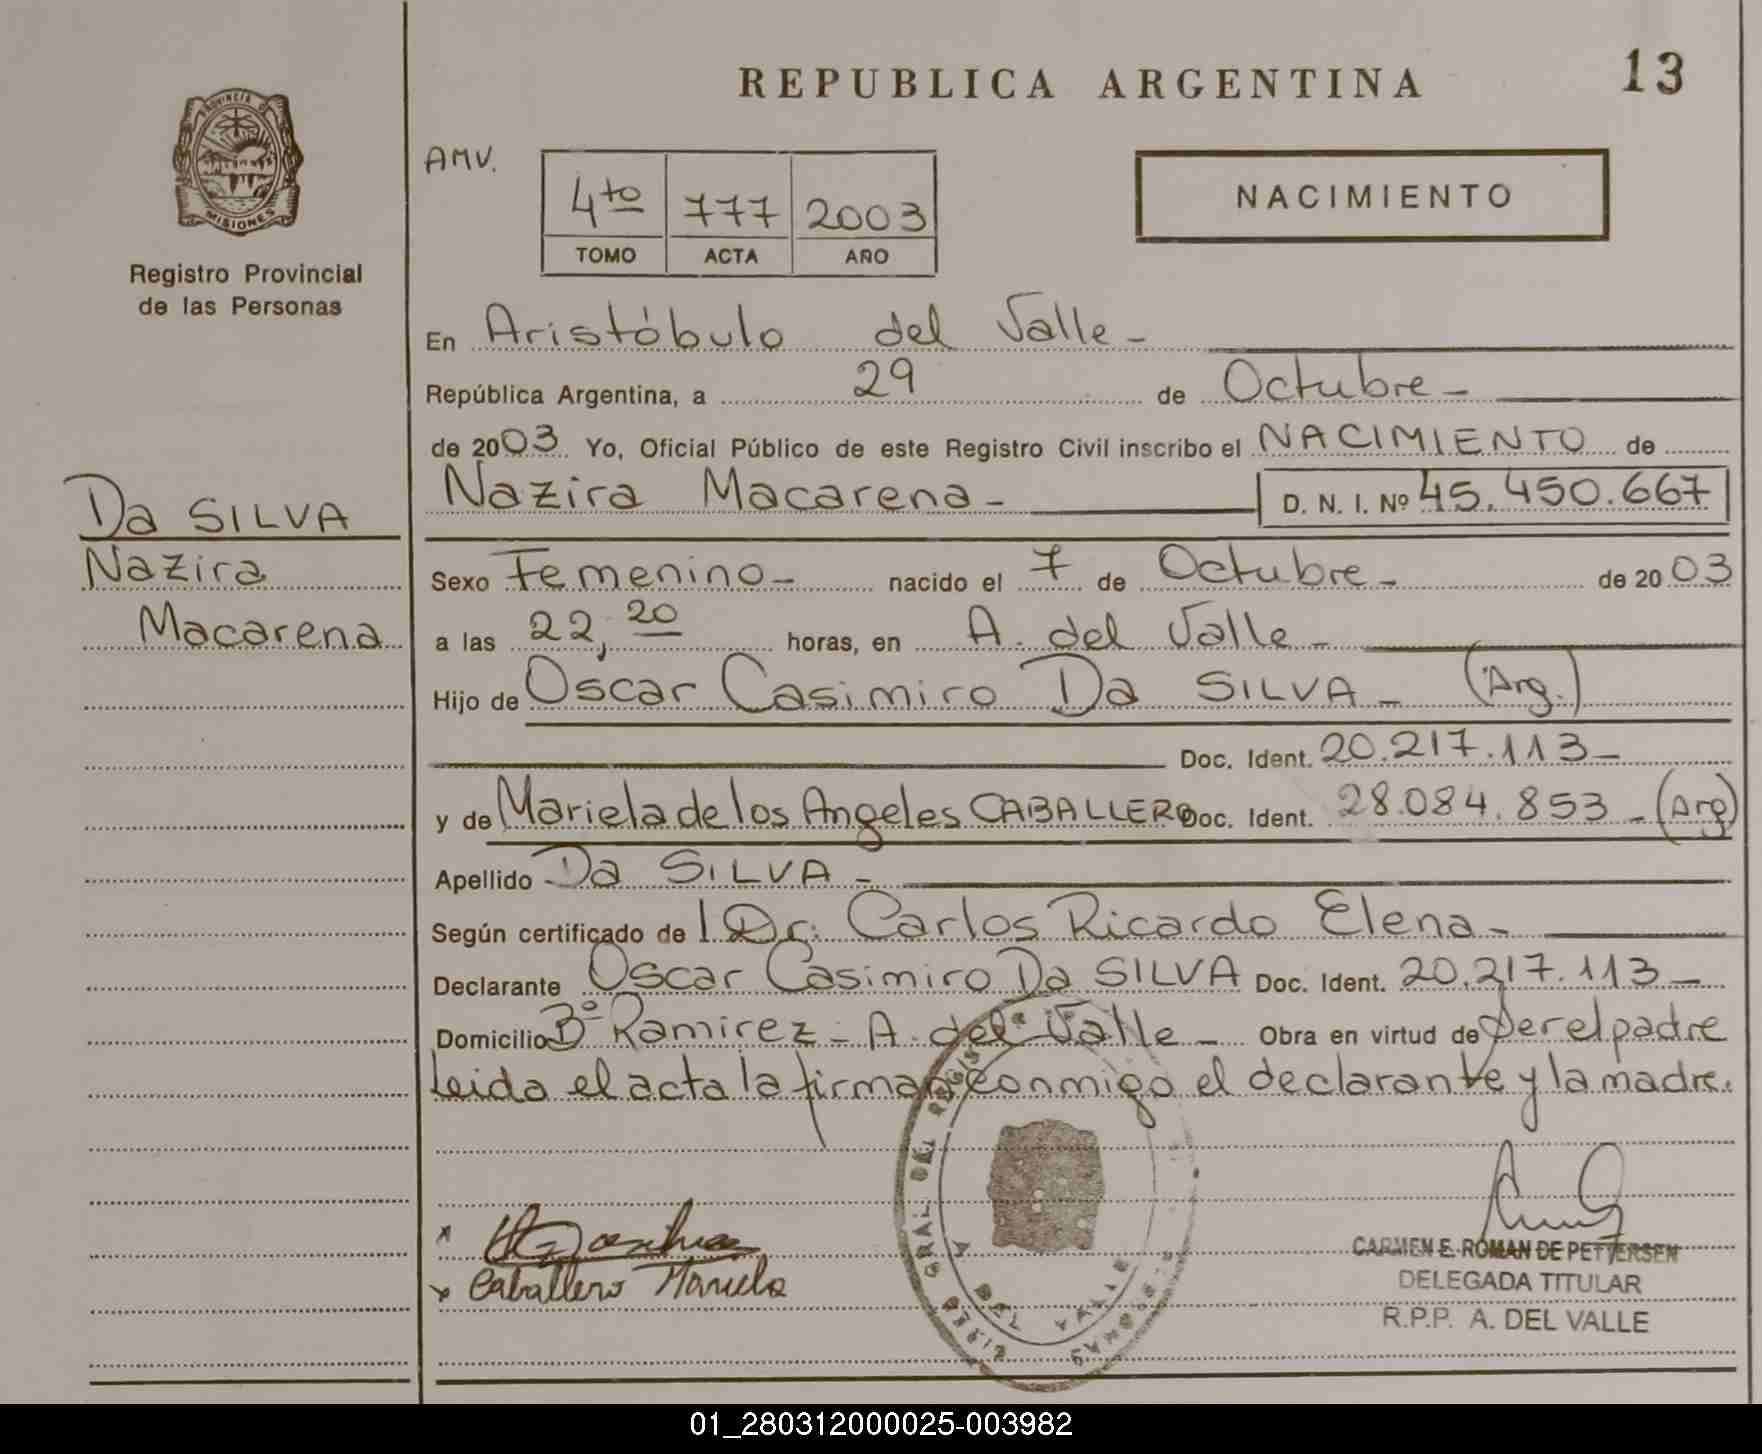 REPUBLICA ARGENTINA
13
PROVINCIA DE
MISIONES
Registro Provincial
de las Personas
AMV.
4to 777 2003
TOMO ACTA AÑO
NACIMIENTO
En Aristóbulo del Valle-
República Argentina, a 29 de Octubre-
de 2003. Yo, Oficial Público de este Registro Civil inscribo el NACIMIENTO de
Nazira Macarena- D. N. I. Nº 45.450.667
Da SILVA
Nazira
Macarena
Sexo Femenino- nacido el 7 de Octubre- de 2003
a las 22,20 horas, en A. del Valle-
Hijo de Oscar Casimiro Da SILVA- (Arg.)
Doc. Ident. 20.217.113-
y de Mariela de los Angeles CABALLERO Doc. Ident. 28.084.853-(Arg)
Apellido Da SILVA-
Según certificado de l Dr. Carlos Ricardo Elena-
Declarante Oscar Casimiro Da SILVA Doc. Ident. 20.217.113-
Domicilio Bº Ramirez- A. del Valle- Obra en virtud de ser el padre
Leida el acta la firman conmigo el declarante y la madre.
Caballero Mariela
GRAL. DEL REGIS
A. DEL VALLE
CARMEN E. ROMAN DE PETTERSEN
DELEGADA TITULAR
R.P.P. A. DEL VALLE
01_280312000025-003982